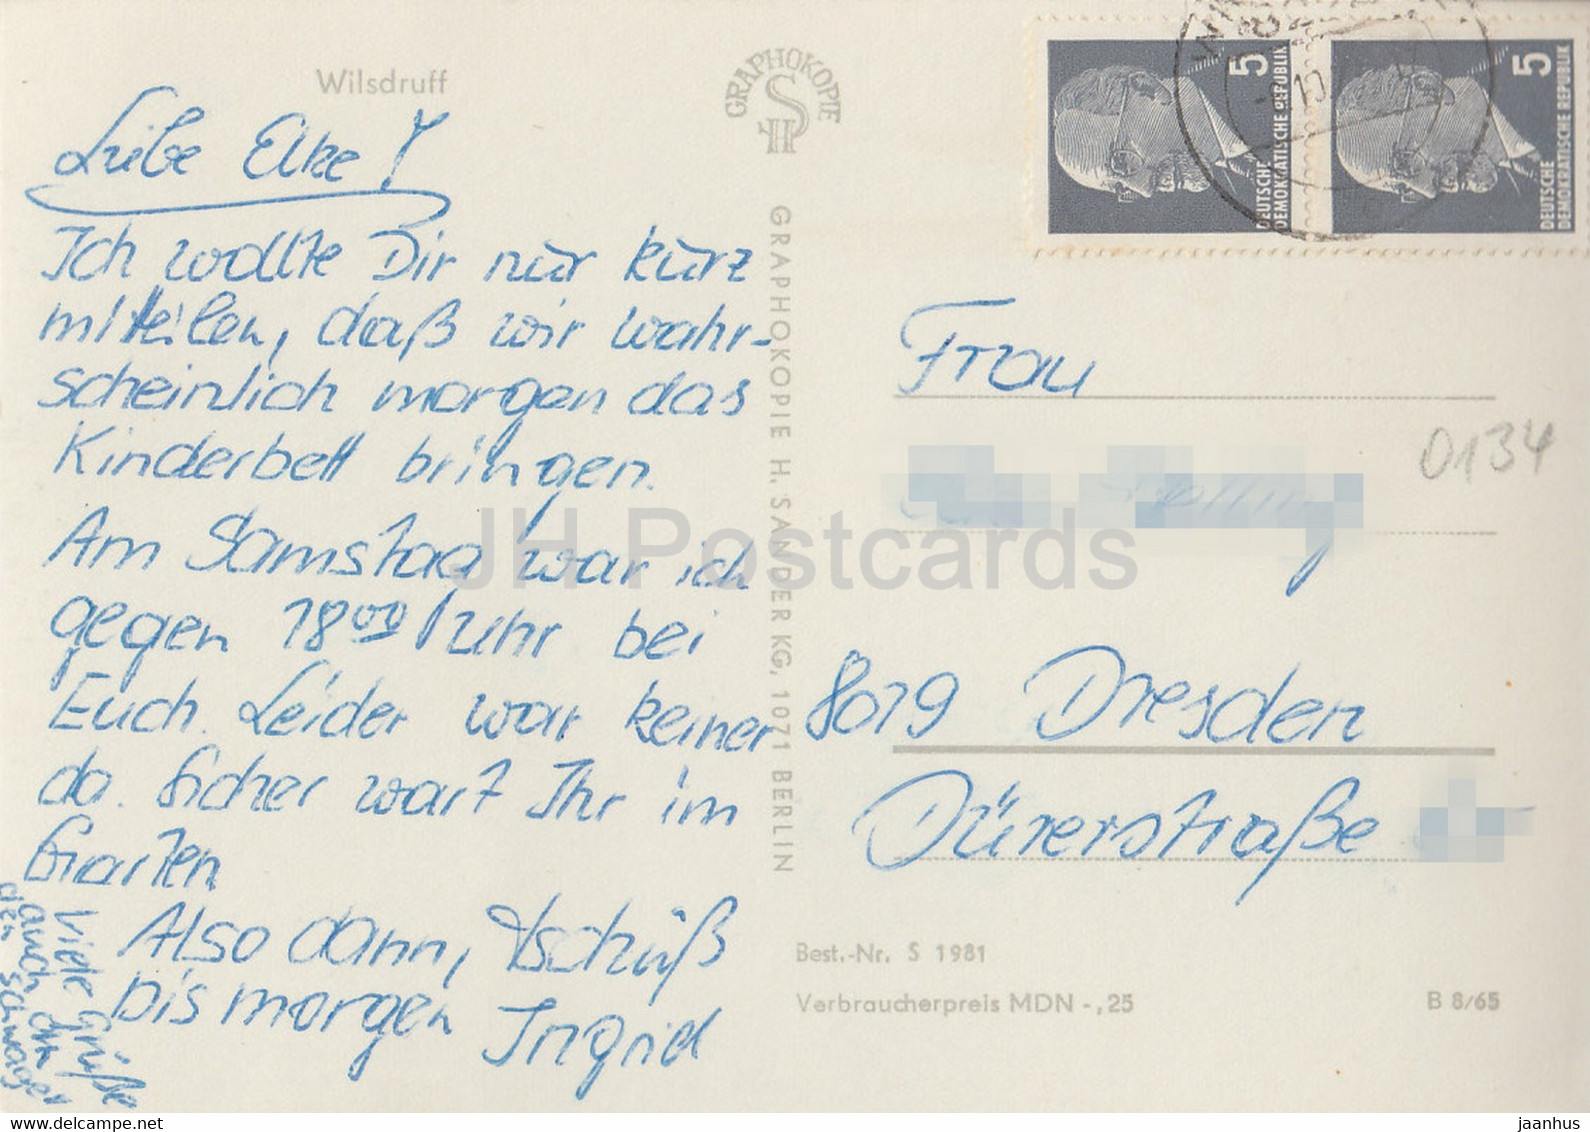 Wilsdruff
Liebe Elke!
Ich wollte Dir nur kurz
mitteilen, daß wir wahr-
scheinlich morgen das
Kinderbett bringen.
Am Samstag war ich
gegen 18 00 Uhr bei
Euch. Leider war keiner
da. Sicher wart Ihr im
Garten
Also dann, tschüß
bis morgen Ingrid
Viele Grüße
auch an
den Schwager
GRAPHOKOPIE
H S
GRAPHOKOPIE H. SANDER KG, 1071 BERLIN
5
DEUTSCHE
DEMOKRATISCHE REPUBLIK
5
DEUTSCHE
DEMOKRATISCHE REPUBLIK
Frau
0134
8019 Dresden
Dürerstraße
Best.-Nr. S 1981
Verbraucherpreis MDN -,25
B 8/65
JH Postcards
www.delcampe.net
jaanhus